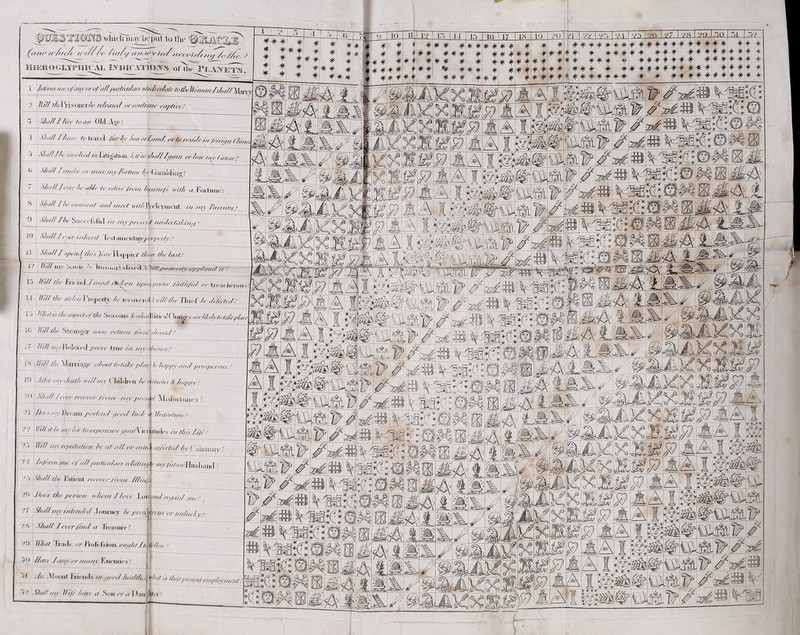 QUESTIONS which may be put to the ORACLE
(and which will be truly answered according to the
HIEROGLYPHICAL INDICATIONS of the PLANETS.
1 2 3 4 5 6 7 8 9 10 11 12 13 14 15 16 17 18 19 20 21 22 23 24 25 26 27 28 29 30 31 32
1 Inform me of any or of all particulars which relate to the Woman I shall Marry
2 Will the Prisoner be released or continue captive?
3 Shall I live to an Old Age?
4 Shall I have to travel far by Sea or Land, or to reside in foreign Climes
5 Shall I be involved in Litigation, & if so shall I gain or lose my Cause?
6 Shall I make, or mar, my Fortune by Gambling?
7 Shall I ever be able to retire from business with a Fortune?
8 Shall I be eminent and meet with Preferment in my Pursuits?
9 Shall I be Successful in my present undertaking?
10 Shall I ever inherit Testamentary property?
11 Shall I spend this Year Happier than the last?
12 Will my Name be Immortalized & will posterity applaud it?
13 Will the Friend I most reckon upon prove faithful or treacherous
14 Will the stolen Property be recovered & will the Thief be detected?
15 What is the aspect of the Seasons & what Political Changes are likely to take place
16 Will the Stranger soon return from abroad?
17 Will my Beloved prove true in my absence?
18 Will the Marriage about to take place be happy and prosperous?
19 After my death will my Children be virtuous & happy?
20 Shall I ever recover from my present Misfortunes?
21 Does my Dream portend good luck or Misfortune?
22 Will it be my lot to experience great Vicissitudes in this Life?
23 Will my reputation be at all or much affected by Calumny?
24 Inform me of all particulars relating to my future Husband!
25 Shall the Patient recover from Illness?
26 Does the person whom I love Love and regard me?
27 Shall my intended Journey be prosperous or unlucky?
28 Shall I ever find a Treasure?
29 What Trade or Profession ought I to follow?
30 Have I any, or many Enemies?
31 Are Absent Friends in good health, & what is their present employment
32 Shall my Wife have a Son or a Daughter?